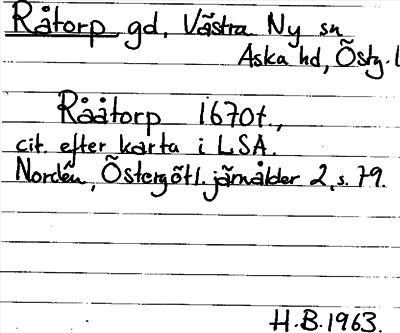 Råtorp gd, Västra Ny sn
Aska hd, Östg.l
Rååtorp 1670t.,
cit. efter karta i LSA.
Nordén, Östergötl. järnålder 2, s. 79.
H.B. 1963.